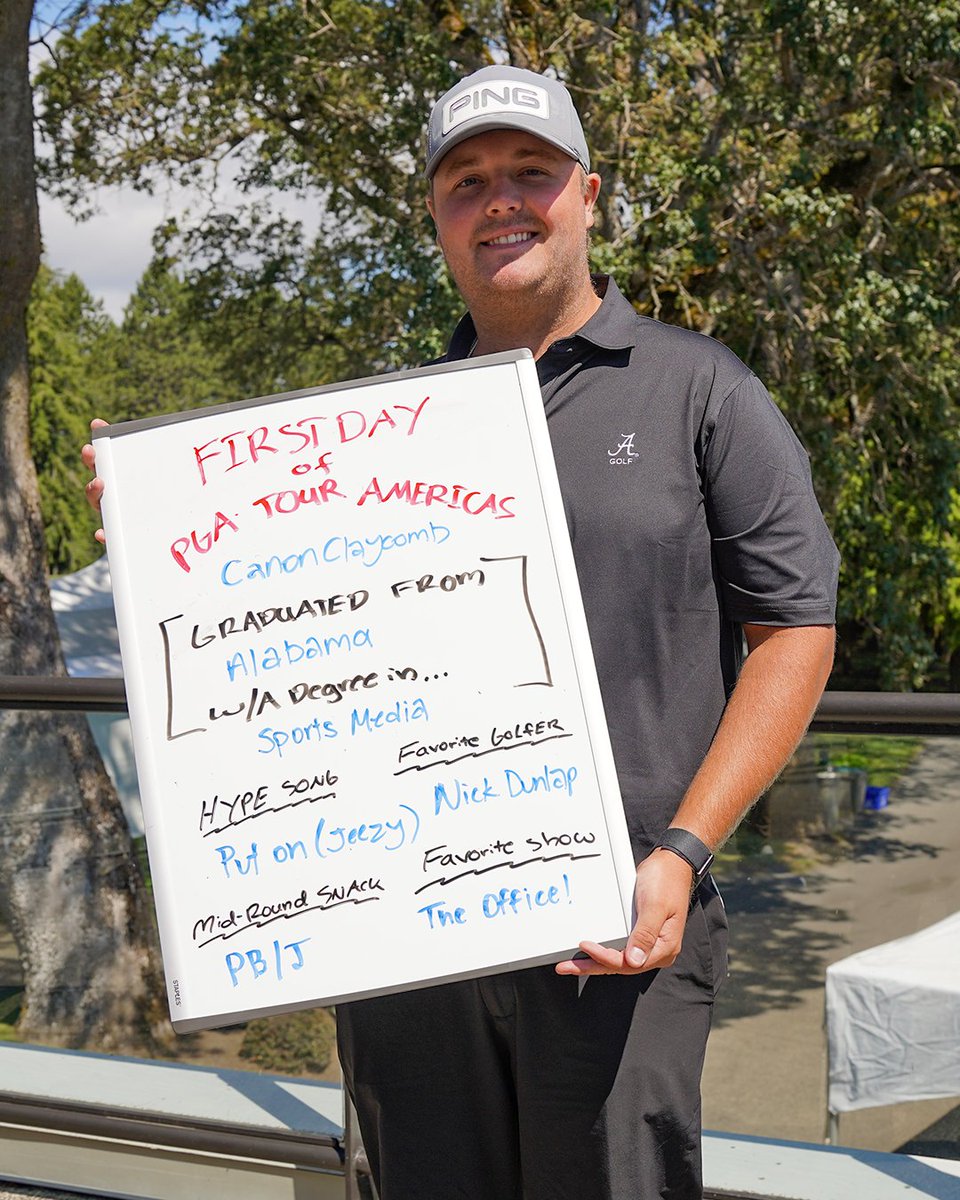 PING
A
GOLF
FIRST DAY
of
PGA TOUR AMERICAS
Canon Claycomb
GRADUATED FROM
Alabama
w/A Degree in...
Sports Media
HYPE SONG
Put on (Jeezy)
Favorite GOLFER
Nick Dunlap
Mid-Round SNACK
PB/J
Favorite Show
The Office!
STAPLES